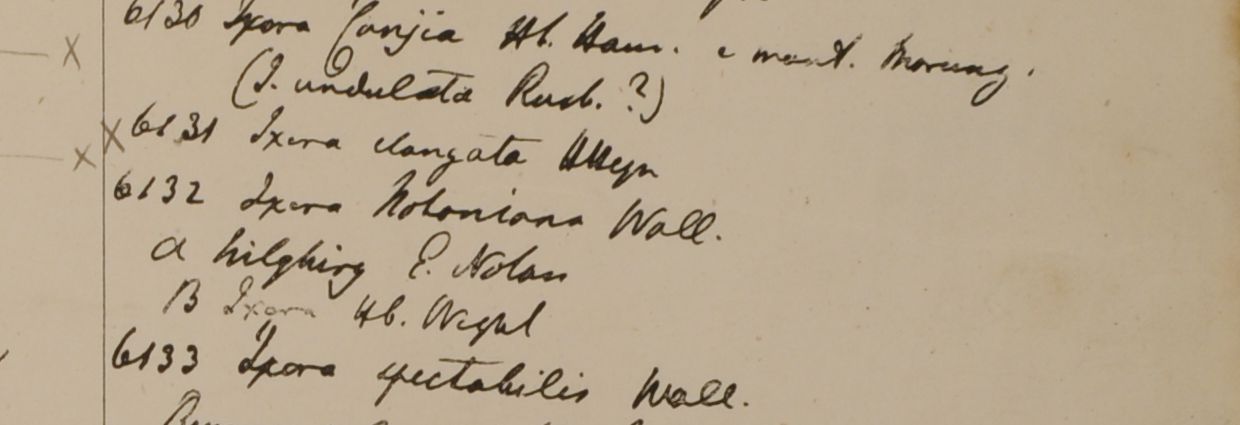 6130 Ixora Conjia Hb. Ham. e mont. Morung.
(I. undulata Roxb. ?)
x 6131 Ixora elongata Heyn
6132 Ixora Notoniana Wall.
a Nilghiry E. Noton
B Ixora Hb. Wight
6133 Ixora spectabilis Wall.